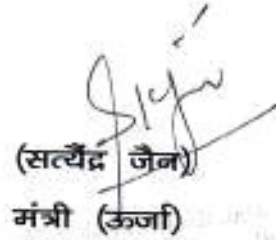 (सत्येंद्र जैन)
मंत्री (ऊर्जा)